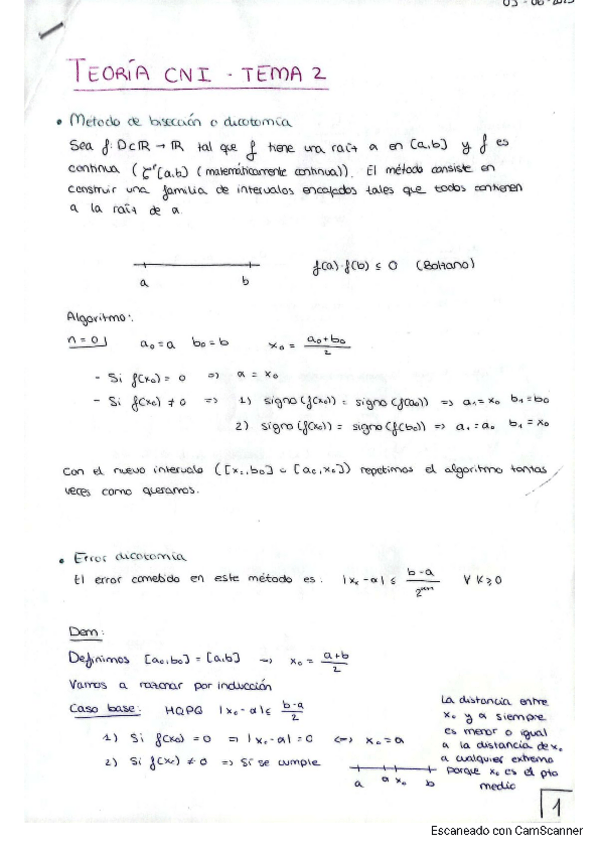 03-06-2023
TEORÍA CNI - TEMA 2
• Método de bisección o dicotomía
Sea f: D⊂ℝ → ℝ tal que f tiene una raíz α en [a,b] y f es
continua (ζ⁰[a,b] (matemáticamente continua)). El método consiste en
construir una familia de intervalos encajados tales que todos contienen
a la raíz de α.
f(a)·f(b) ≤ 0 (Bolzano)
a b
Algoritmo:
n = 0 a₀ = a b₀ = b x₀ = (a₀+b₀)/2
- Si f(x₀) = 0 => α = x₀
- Si f(x₀) ≠ 0 => 1) signo(f(x₀)) = signo(f(a₀)) => a₁ = x₀ b₁ = b₀
2) signo(f(x₀)) = signo(f(b₀)) => a₁ = a₀ b₁ = x₀
Con el nuevo intervalo ([x₀,b₀] o [a₀,x₀]) repetimos el algoritmo tantas
veces como queramos.
• Error dicotomía
El error cometido en este método es: |xₖ-α| ≤ (b-a)/2ᵏ⁺¹ ∀ k≥0
Dem:
Definimos [a₀,b₀] = [a,b] → x₀ = (a+b)/2
Vamos a razonar por inducción
Caso base: HQPQ |x₀-α| ≤ (b-a)/2
1) Si f(x₀) = 0 => |x₀-α| = 0 <=> x₀ = α
2) Si f(x₀) ≠ 0 => Sí se cumple
a α x₀ b
La distancia entre
x₀ y α siempre
es menor o igual
a la distancia de x₀
a cualquier extremo
porque x₀ es el pto
medio
1
Escaneado con CamScanner